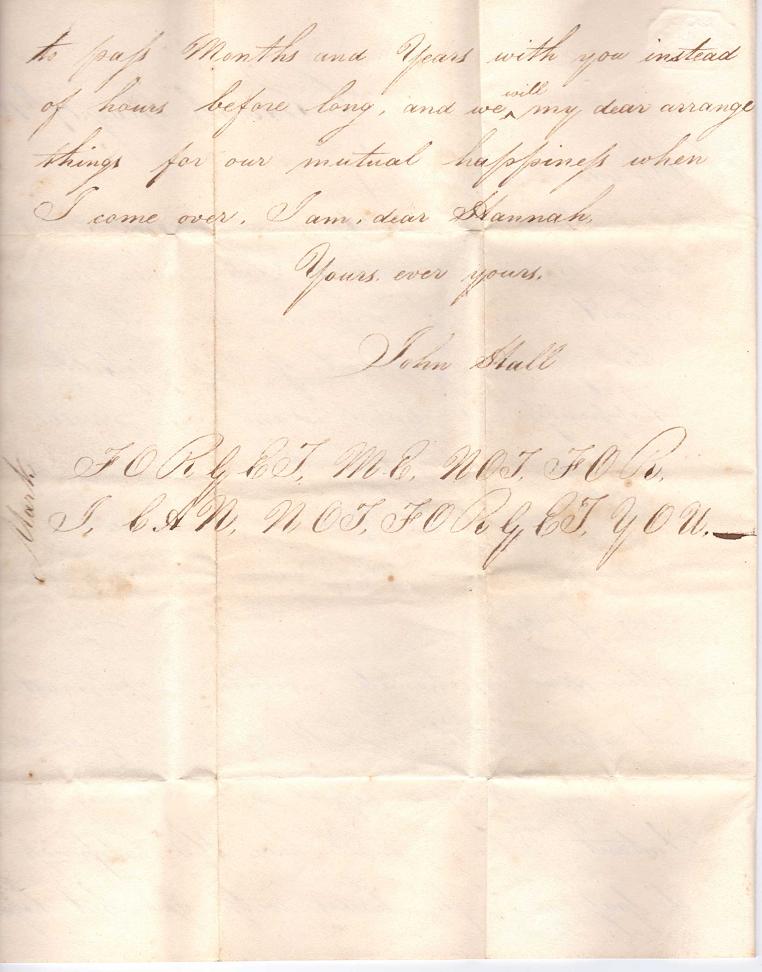 to pass Months and Years with you instead
of hours before long, and we will my dear arrange
things for our mutual happiness when
I come over. I am, dear Hannah,
Yours. ever yours.
John Hall
FORGET, ME, NOT, FOR,
I, CAN, NOT, FORGET, YOU.
Mark